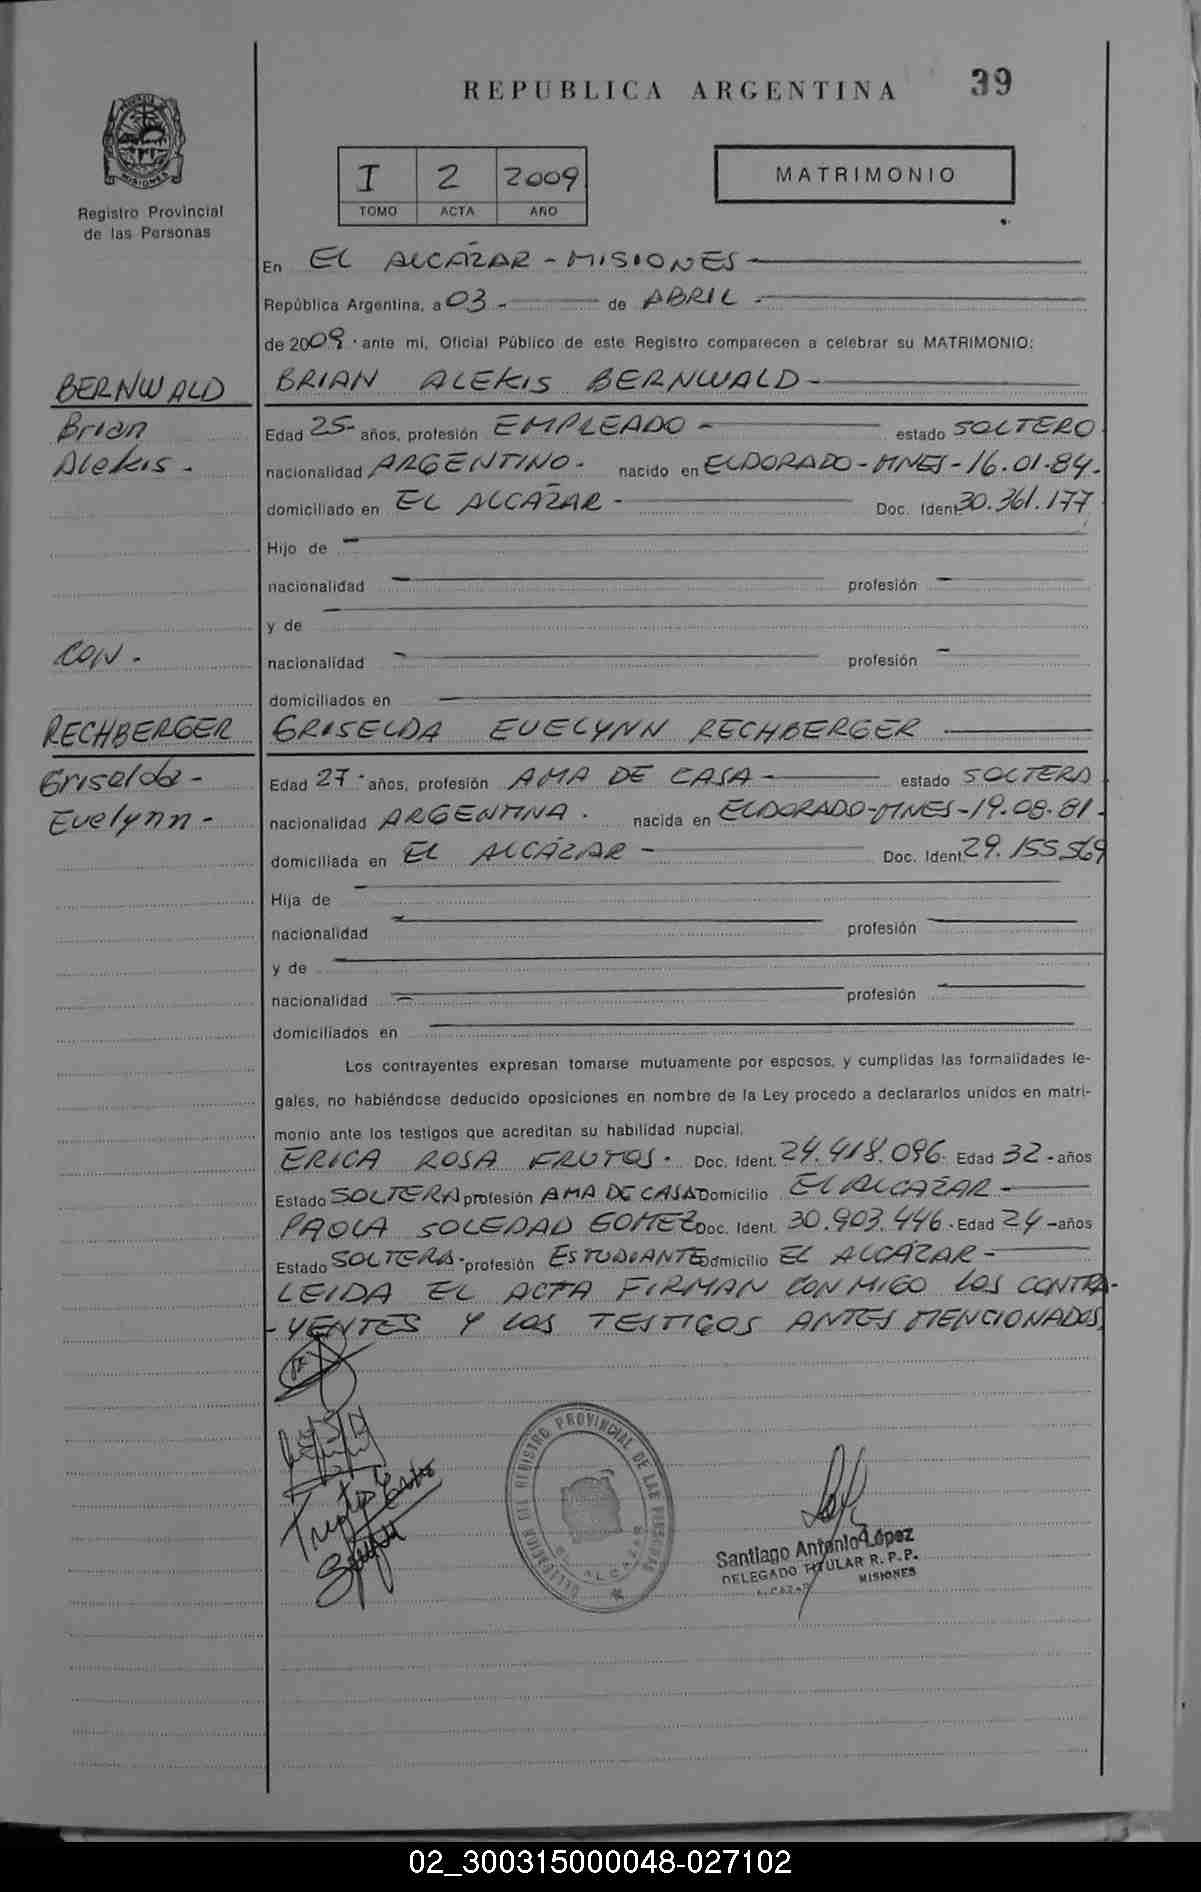 REPUBLICA ARGENTINA 39
MISIONES
Registro Provincial
de las Personas
I 2 2009
TOMO ACTA AÑO
MATRIMONIO
En EL ALCÁZAR - MISIONES -
República Argentina, a 03 - de ABRIL -
de 2009 - ante mi, Oficial Público de este Registro comparecen a celebrar su MATRIMONIO:
BERNWALD
Brian
Alekis -
CON -
RECHBERGER
Griselda -
Evelynn -
BRIAN ALEKIS BERNWALD -
Edad 25 - años, profesión EMPLEADO - estado SOLTERO
nacionalidad ARGENTINO - nacido en ELDORADO - MNES - 16.01.84 -
domiciliado en EL ALCÁZAR - Doc. Ident. 30.361.177
Hijo de -
nacionalidad - profesión -
y de -
nacionalidad - profesión -
domiciliados en -
GRISELDA EVELYNN RECHBERGER
Edad 27 - años, profesión AMA DE CASA - estado SOLTERA
nacionalidad ARGENTINA - nacida en ELDORADO - MNES - 19.08.81 -
domiciliada en EL ALCÁZAR - Doc. Ident. 29.155.569
Hija de -
nacionalidad - profesión -
y de -
nacionalidad - profesión -
domiciliados en -
Los contrayentes expresan tomarse mutuamente por esposos, y cumplidas las formalidades le-
gales, no habiéndose deducido oposiciones en nombre de la Ley procedo a declararlos unidos en matri-
monio ante los testigos que acreditan su habilidad nupcial.
ERICA ROSA FRUTOS - Doc. Ident. 24.418.096 - Edad 32 - años
Estado SOLTERA profesión AMA DE CASA Domicilio EL ALCAZAR -
PAOLA SOLEDAD GOMEZ Doc. Ident. 30.903.446 - Edad 24 - años
Estado SOLTERA - profesión ESTUDIANTE Domicilio EL ALCÁZAR -
LEIDA EL ACTA FIRMAN CONMIGO LOS CONTRA-
- YENTES Y LOS TESTIGOS ANTES MENCIONADOS
DELEGACION DEL REGISTRO PROVINCIAL DE LAS PERSONAS
EL ALCAZAR
Santiago Antonio López
DELEGADO TITULAR R. P. P.
ALCAZAR MISIONES
02_300315000048-027102